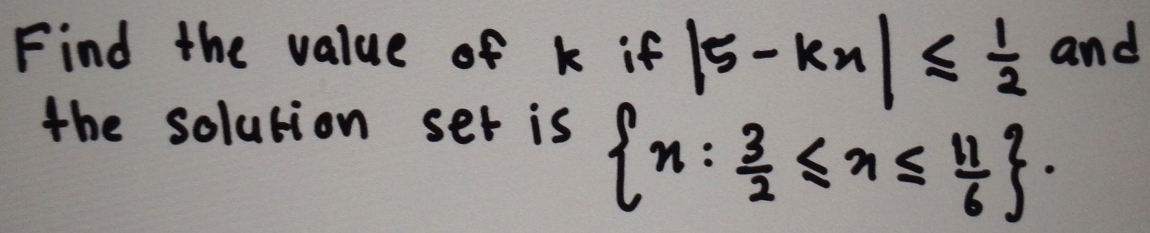 Find the value of k if |5 - kx| ≤ 1/2 and
the solution set is {x : 3/2 ≤ x ≤ 11/6}.